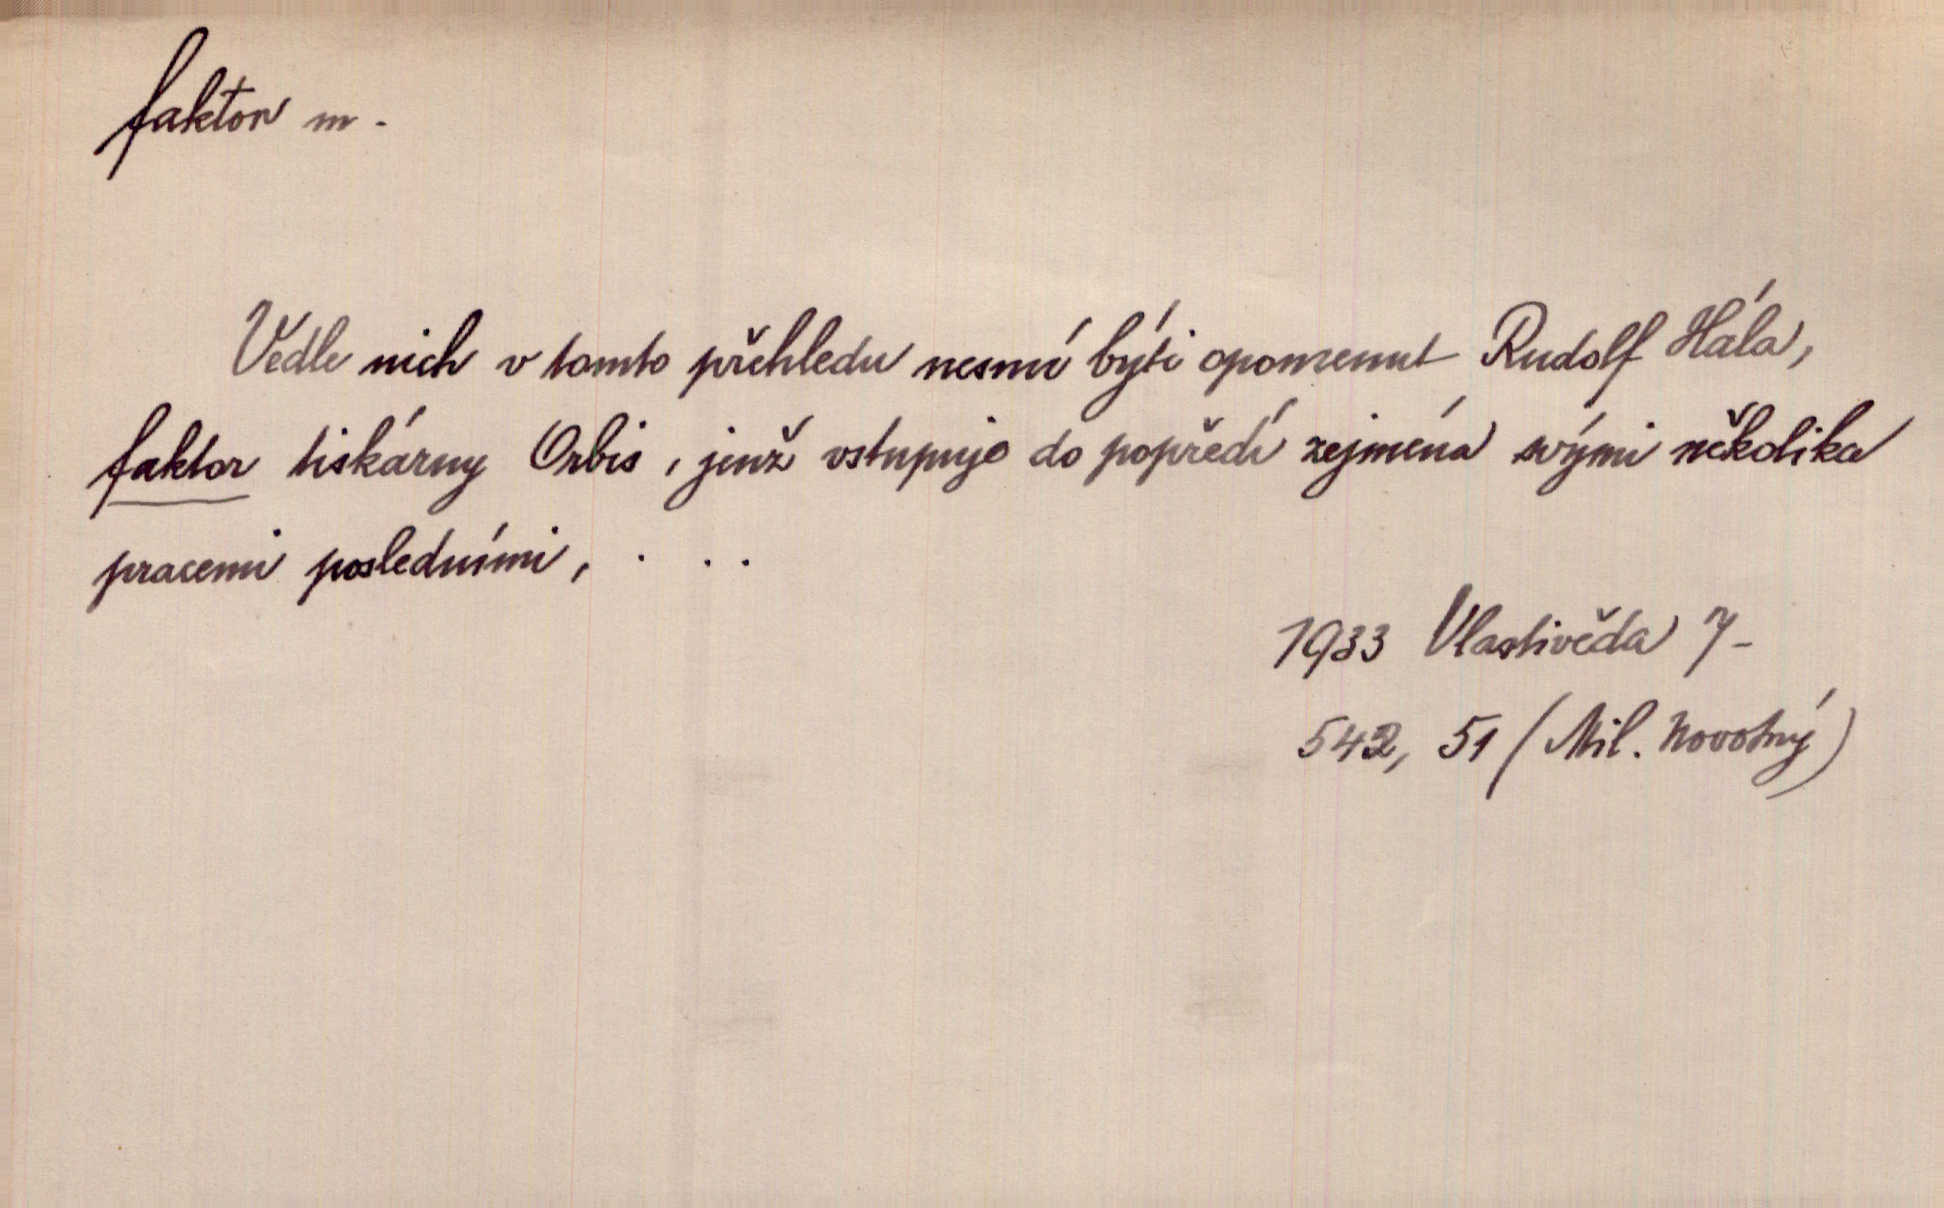 faktor m.
Vedle nich v tomto přehledu nesmí býti opomenut Rudolf Hála,
faktor tiskárny Orbis, jenž vstupuje do popředí zejména svými několika
pracemi posledními, . . .
1933 Vlastivěda 7-
542, 51 (Mil. Novotný)